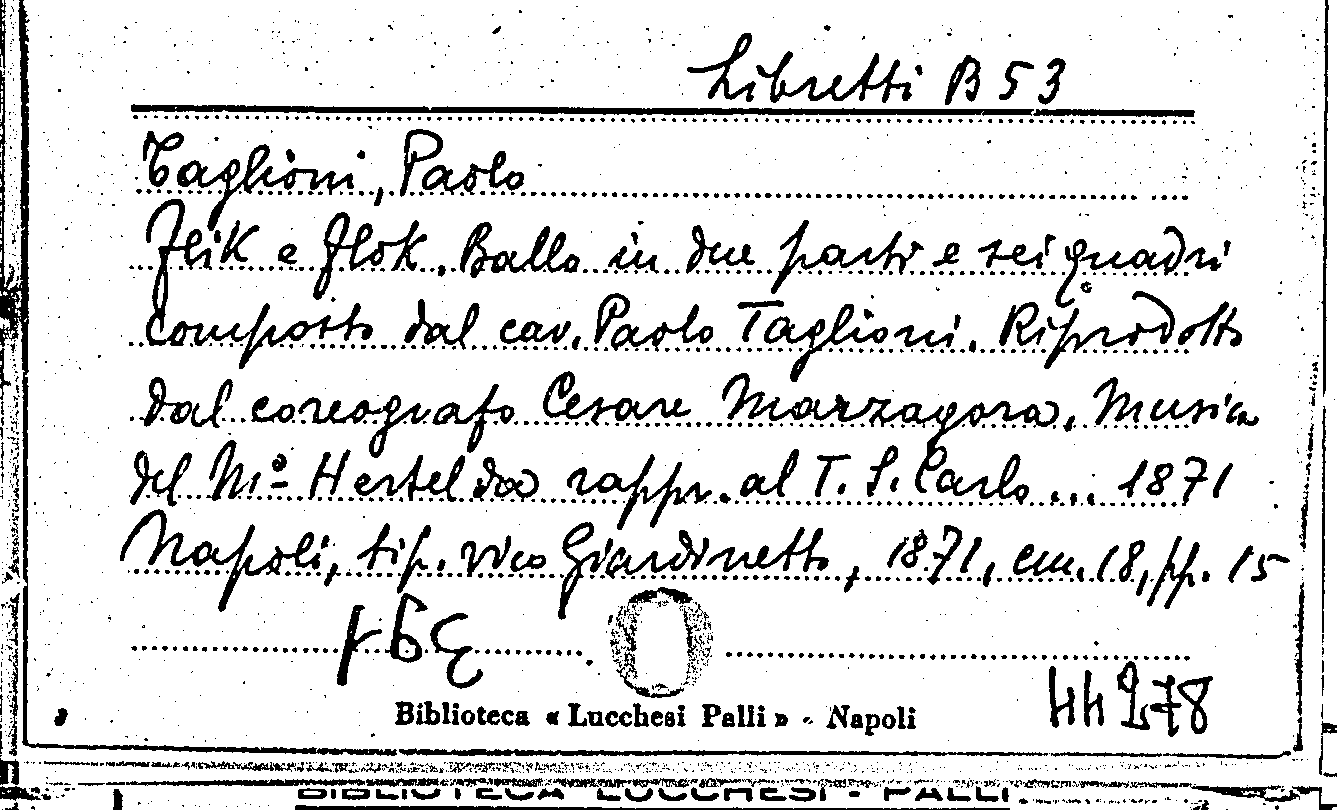 Libretti B 53
Taglioni, Paolo
Flik e Flok. Ballo in due parti e sei quadri
composto dal cav. Paolo Taglioni. Riprodotto
dal coreografo Cesare Marzagora. Musica
del Mº Hertel da rappr. al T. S. Carlo... 1871
Napoli, tip. vico Giardinetto, 1871, cm. 18, pp. 15
Biblioteca « Lucchesi Palli » - Napoli
44278
BIBLIOTECA LUCCHESI - PALLI